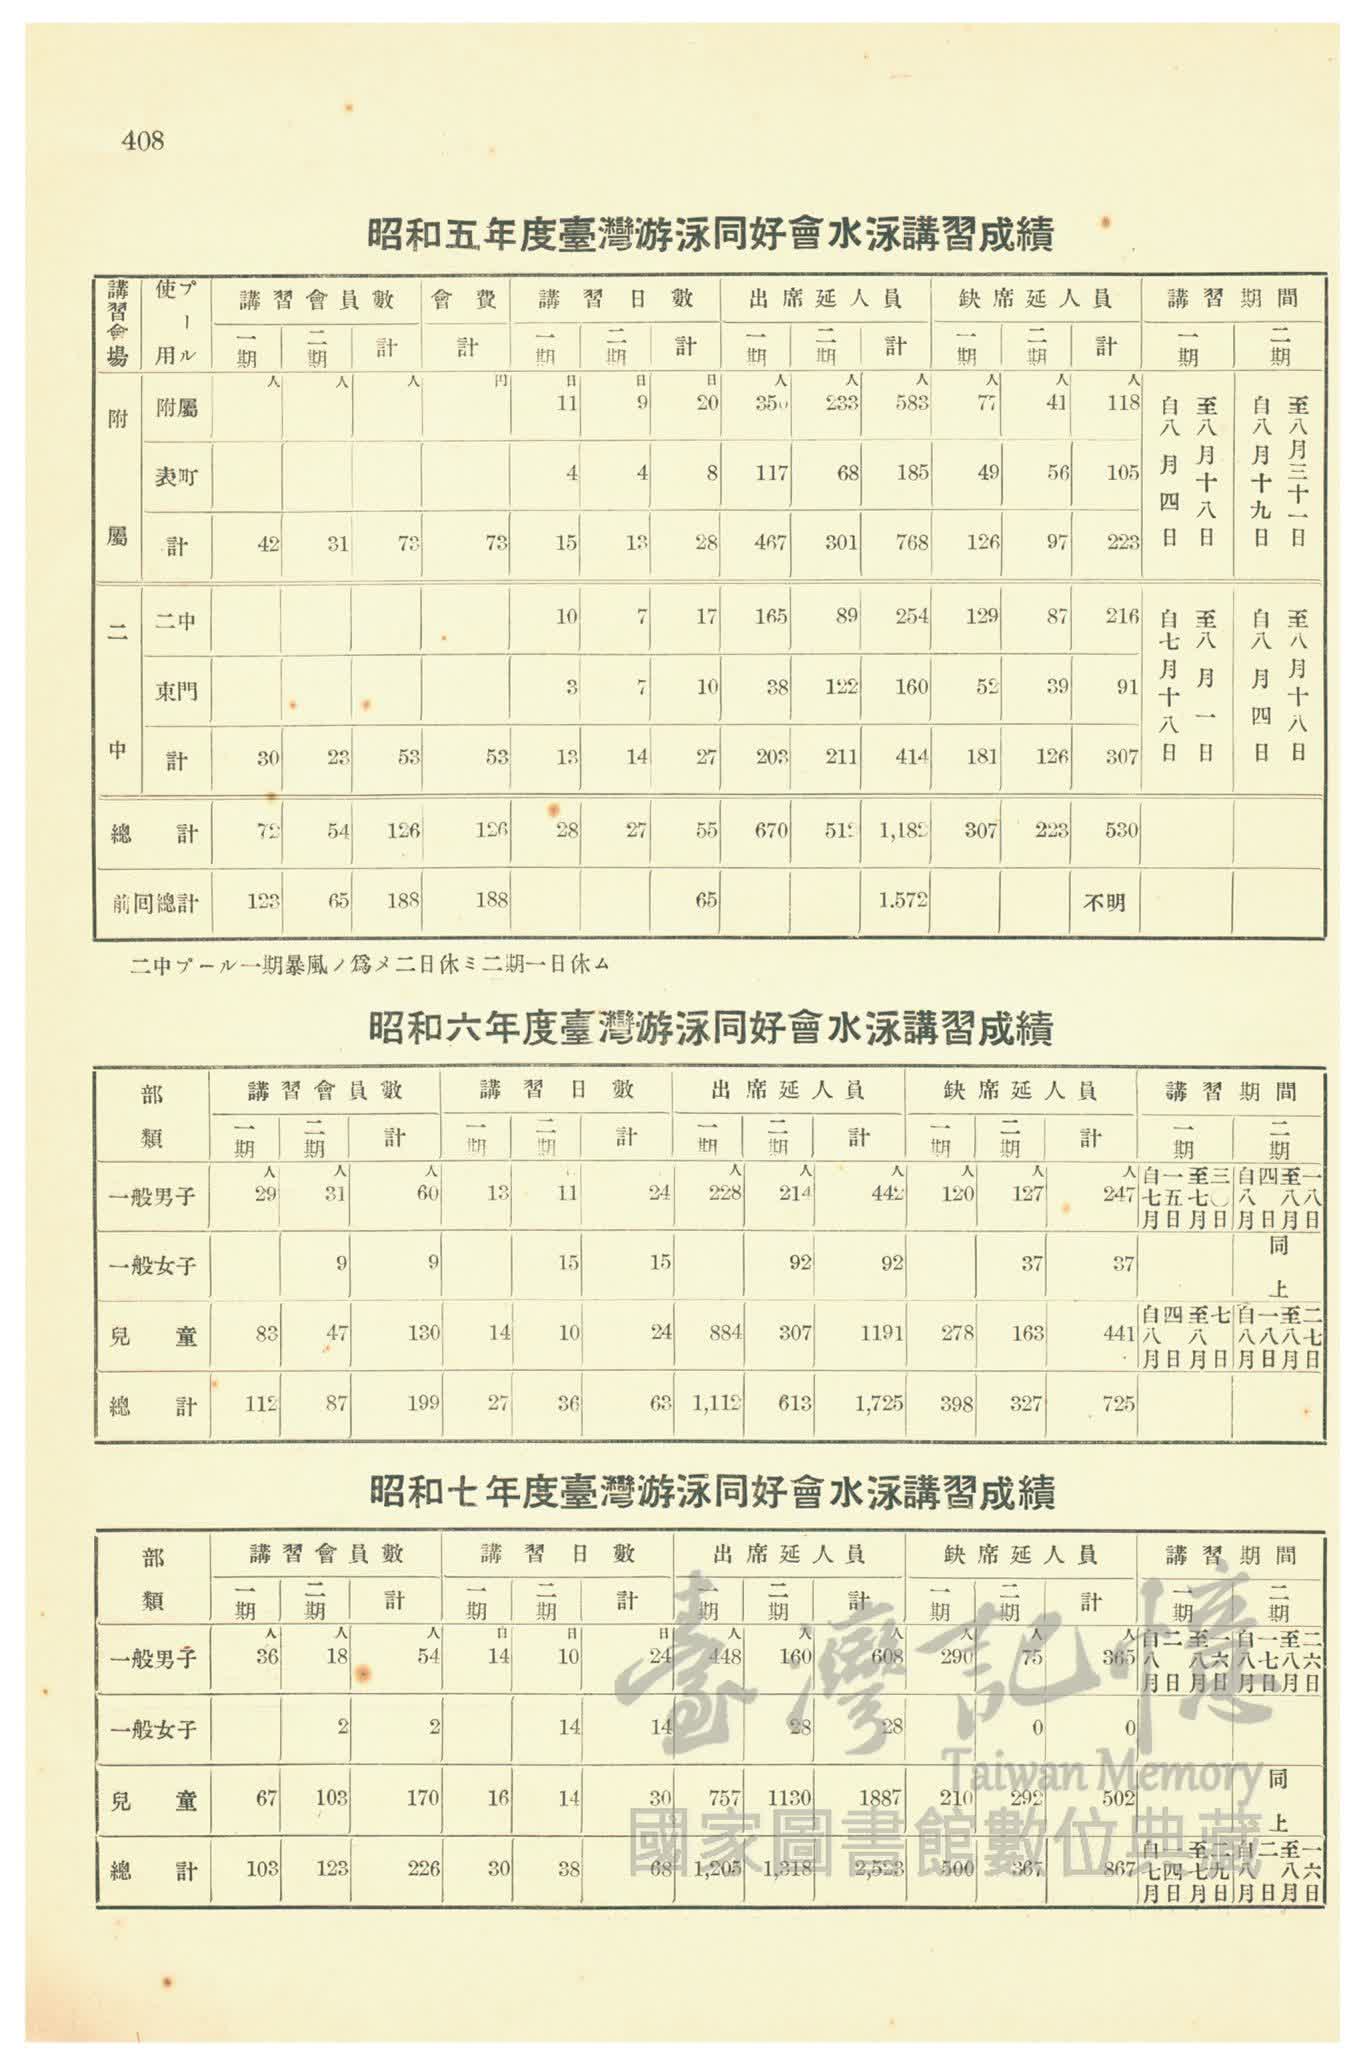 408
昭和五年度臺灣游泳同好會水泳講習成績
講習會場 プール使用 講習會員數 會費 講習日數 出席延人員 缺席延人員 講習期間
一期 二期 計 計 一期 二期 計 一期 二期 計 一期 二期 計 一期 二期
人 人 人 円 日 日 日 人 人 人 人 人 人
附屬 附屬 11 9 20 350 233 583 77 41 118 自八月四日 至八月十八日 自八月十九日 至八月三十一日
表町 4 4 8 117 68 185 49 56 105
計 42 31 73 73 15 13 28 467 301 768 126 97 223
二中 二中 10 7 17 165 89 254 129 87 216 自七月十八日 至八月一日 自八月四日 至八月十八日
東門 3 7 10 38 122 160 52 39 91
計 30 23 53 53 13 14 27 203 211 414 181 126 307
總計 72 54 126 126 28 27 55 670 512 1,182 307 223 530
前回總計 123 65 188 188 65 1.572 不明
二中プール一期暴風ノ爲メ二日休ミ二期一日休ム
昭和六年度臺灣游泳同好會水泳講習成績
部類 講習會員數 講習日數 出席延人員 缺席延人員 講習期間
一期 二期 計 一期 二期 計 一期 二期 計 一期 二期 計 一期 二期
人 人 人 人 人 人 人 人 人
一般男子 29 31 60 13 11 24 228 214 442 120 127 247 自七月一五日 至七月三〇日 自八月四日 至八月一八日
一般女子 9 9 15 15 92 92 37 37 同上
兒童 83 47 130 14 10 24 884 307 1191 278 163 441 自八月四日 至八月七日 自八月一八日 至八月二七日
總計 112 87 199 27 36 63 1,112 613 1,725 398 327 725
昭和七年度臺灣游泳同好會水泳講習成績
部類 講習會員數 講習日數 出席延人員 缺席延人員 講習期間
一期 二期 計 一期 二期 計 一期 二期 計 一期 二期 計 一期 二期
人 人 人 日 日 日 人 人 人 人 人 人
一般男子 36 18 54 14 10 24 448 160 608 290 75 365 自八月二日 至八月一六日 自八月一七日 至八月二六日
一般女子 2 2 14 14 28 28 0 0
兒童 67 103 170 16 14 30 757 1130 1887 210 292 502 同上
總計 103 123 226 30 38 68 1,205 1,318 2,523 500 367 867 自七月一四日 至七月二九日 自八月二日 至八月一六日
臺灣記憶
Taiwan Memory
國家圖書館數位典藏